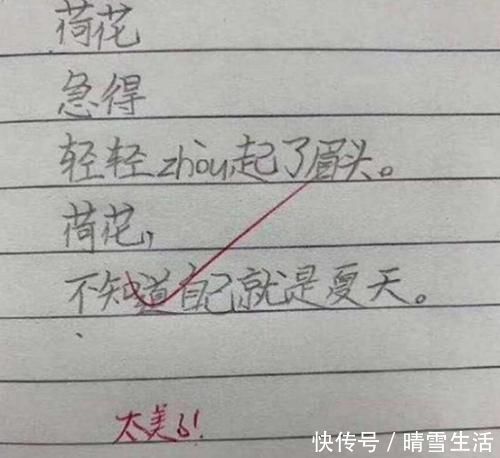 荷花
急得
轻轻zhou起了眉头。
荷花，
不知道自己就是夏天。
太美了!
快传号／晴雪生活